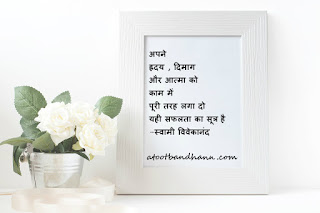 अपने
ह्रदय , दिमाग
और आत्मा को
काम में
पूरी तरह लगा दो
यही सफलता का सूत्र है
-स्वामी विवेकानंद
atootbandhann.com